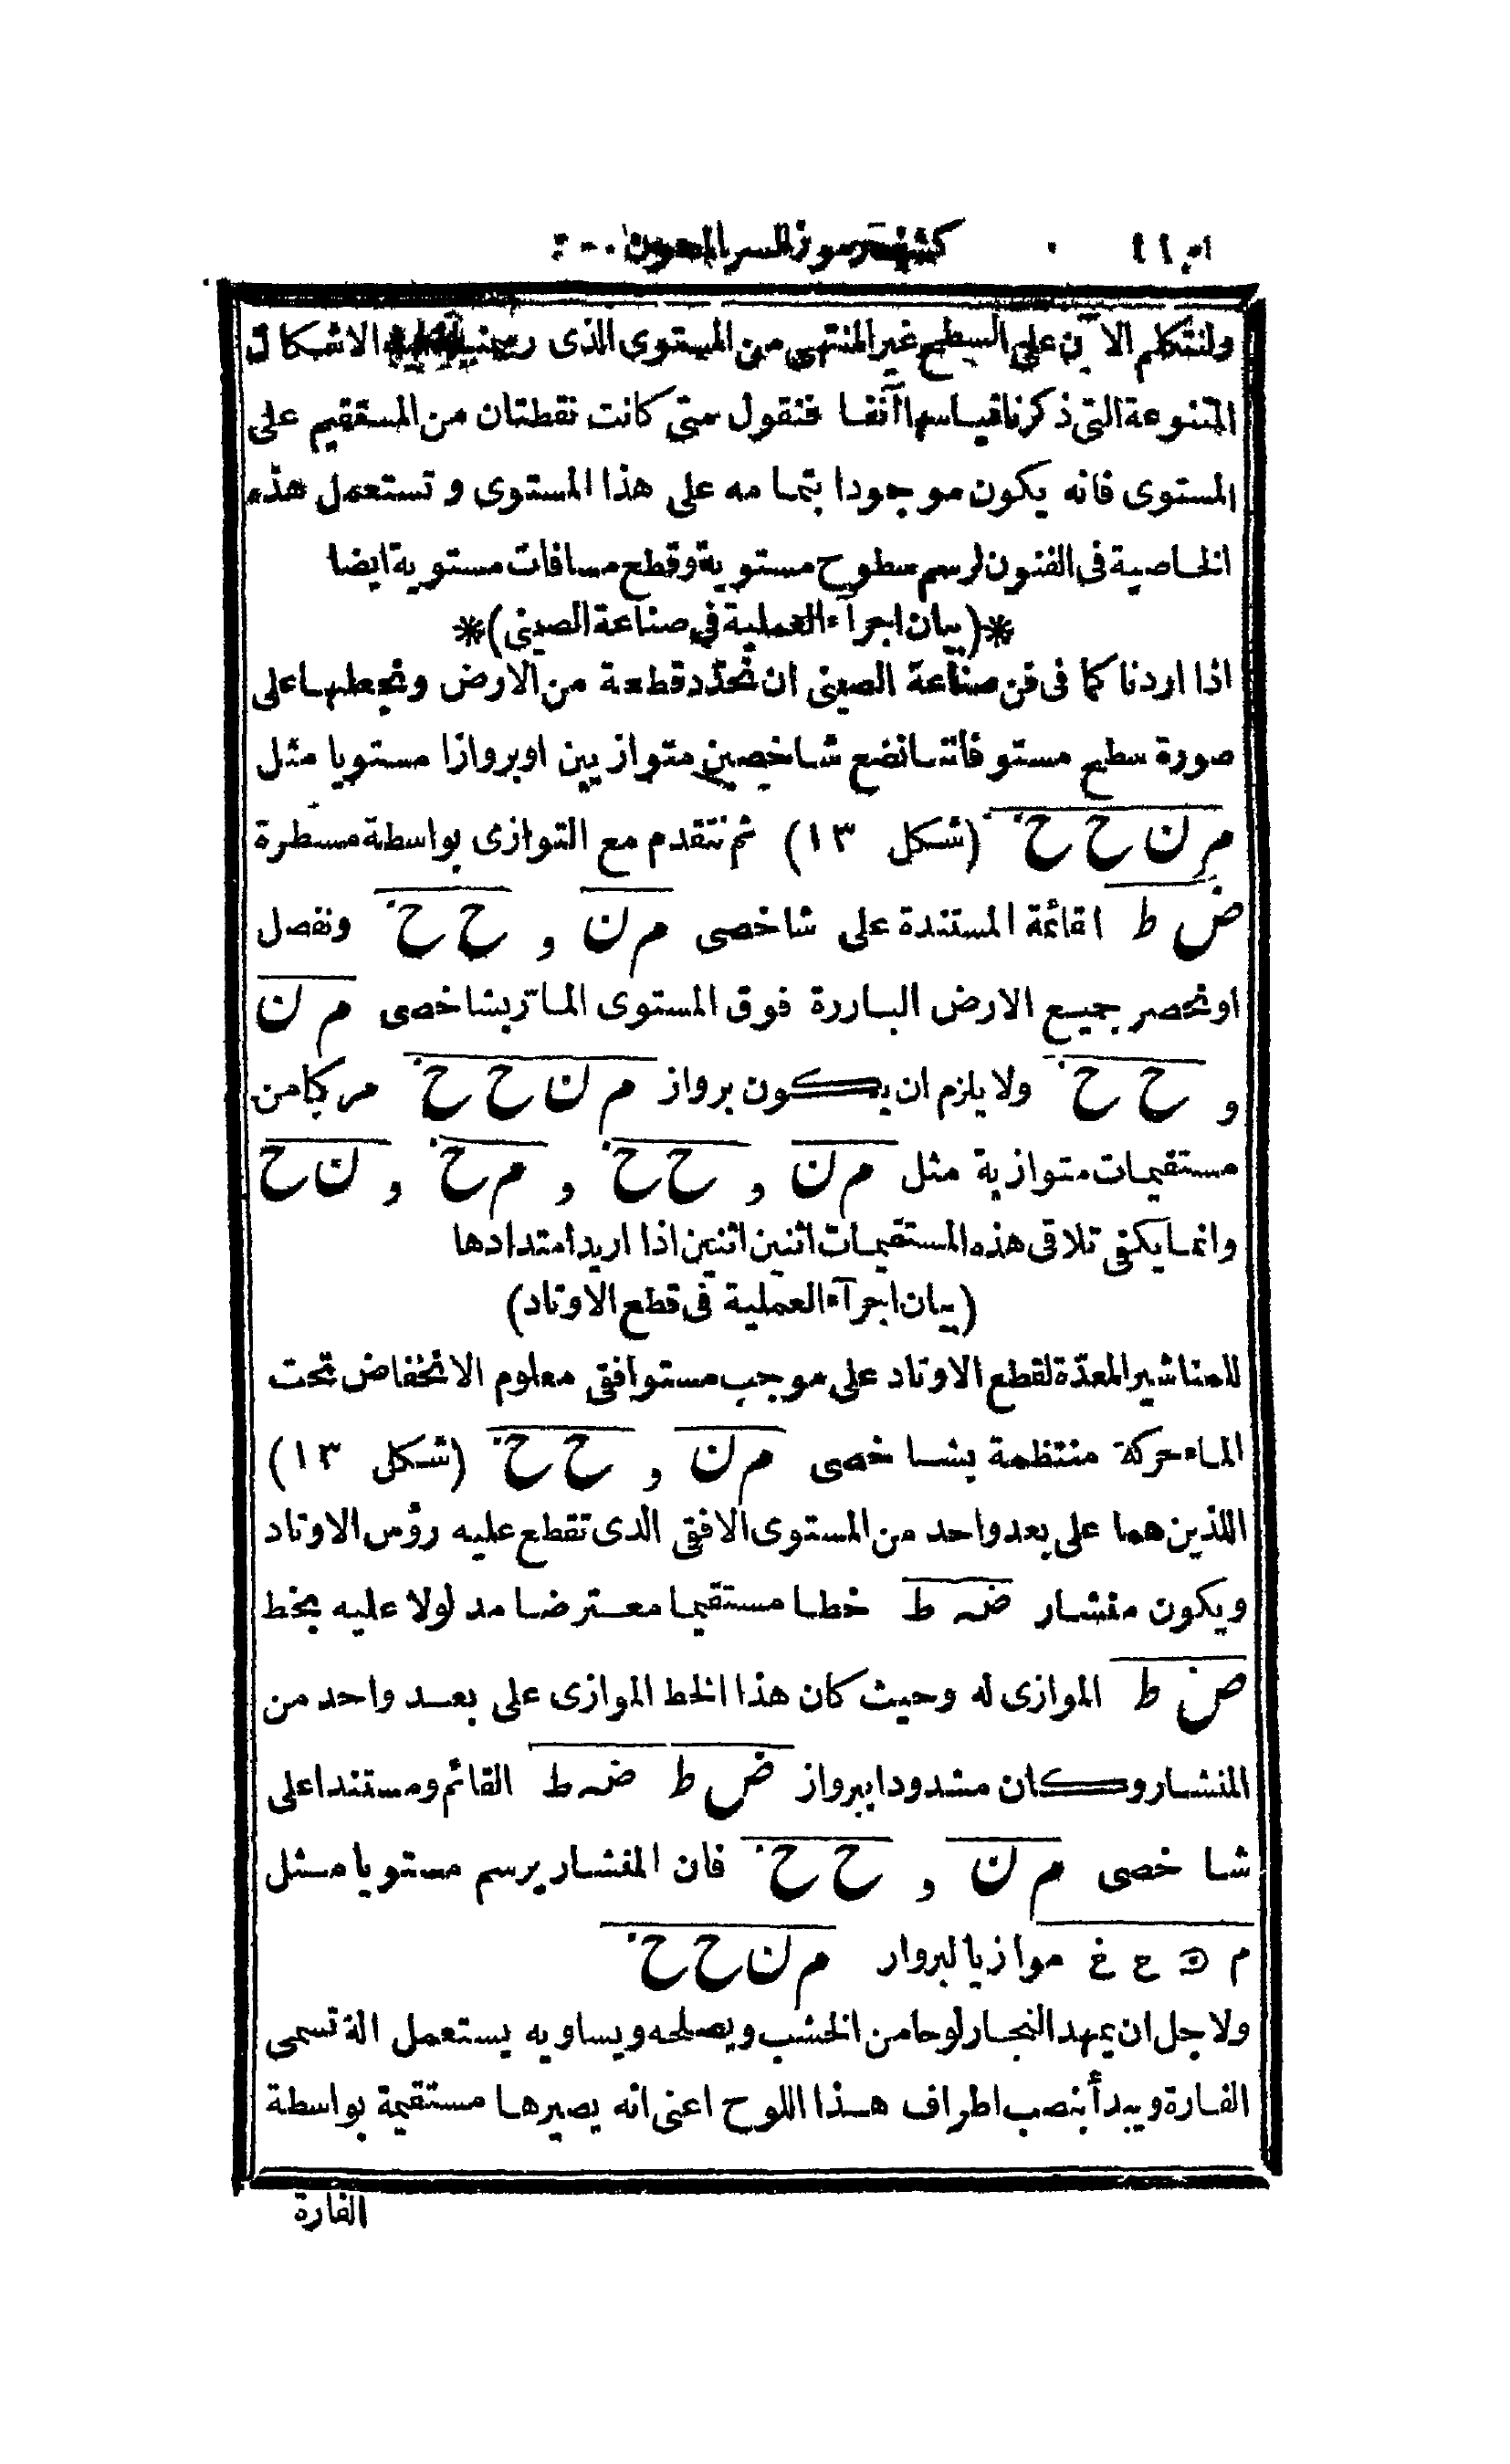 كشف رموز السر المصون
ولنتكلم الآن على السطح غير المنتهى من المستوى الذى الاشكال
المتنوعة التى ذكرنا قياسها آنفا فنقول متى كانت نقطتان من المستقيم على
المستوى فانه يكون موجودا بتمامه على هذا المستوى وتستعمل هذه
الخاصية فى الفنون لرسم سطوح مستوية وقطع مسافات مستوية ايضا
*(بيان اجرآء العملية فى صناعة الصينى)*
اذا اردنا كما فى فن صناعة الصينى ان نحدّد قطعة من الارض ونجعلها على
صورة سطح مستو فاننا نضع شاخصين متوازيين او بروازا مستويا مثل
م ن ح خ (شكل ١٣) ثم نتقدم مع التوازى بواسطة مسطرة
ض ط اقائمة المستندة على شاخصى م ن و ح خ ونفصل
او نحصر جميع الارض الباررة فوق المستوى المارّ بشاخصى م ن
و ح خ ولا يلزم ان يكون برواز م ن ح خ مركبا من
مستقيمات متوازية مثل م ن و ح خ و م خ و ن ح
وانما يكفى تلاقى هذه المستقيمات اثنين اثنين اذا اريد امتدادها
(بيان اجرآء العملية فى قطع الاوتاد)
للمناشير المعدّة لقطع الاوتاد على موجب مستو افقى معلوم الانخفاض تحت
الماء حركة منتظمة بشاخصى م ن و ح خ (شكل ١٣)
اللذين هما على بعد واحد من المستوى الافقى الدى تقطع عليه رؤس الاوتاد
ويكون منشار ضہ ط خطا مستقيما معترضا مدلولا عليه بخط
ض ط الموازى له وحيث كان هذا الخط الموازى على بعد واحد من
المنشار وكان مشدودا ببرواز ض ط ضہ ط القائم ومستندا على
شاخصى م ن و ح خ فان المنشار يرسم مستويا مثل
م ن ح خ موازيا لبروار م ن ح خ
ولاجل ان يمهد النجار لوحا من الخشب ويصلحه ويساويه يستعمل الة تسمى
الفارة ويبدأ بنصب اطراف هذا اللوح اعنى انه يصيرها مستقيمة بواسطة
الفارة